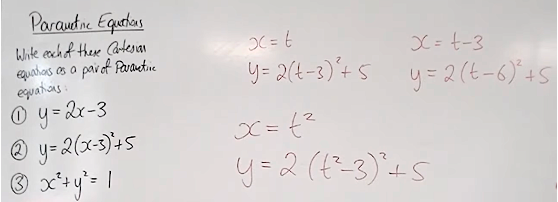 Parametric Equations
Write each of these Cartesian
equations as a pair of Parametric
equations:
① y = 2x-3
② y = 2(x-3)²+5
③ x²+y² = 1
x = t
y = 2(t-3)²+5
x = t-3
y = 2(t-6)²+5
x = t²
y = 2(t²-3)²+5